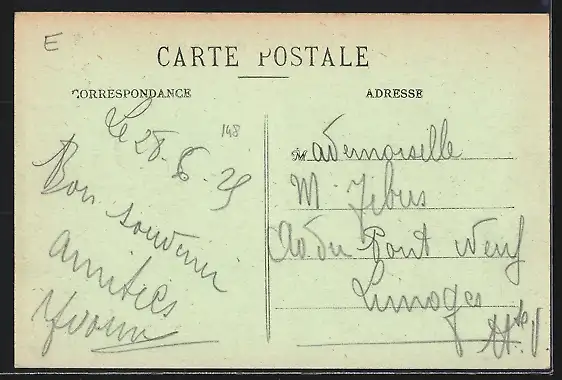 E
CARTE POSTALE
CORRESPONDANCE
ADRESSE
148
Le 28-6-25
Bon souvenir
amitiés
Yvonn
Mademoiselle
M
du Pont Neuf
Limoges
Hte V